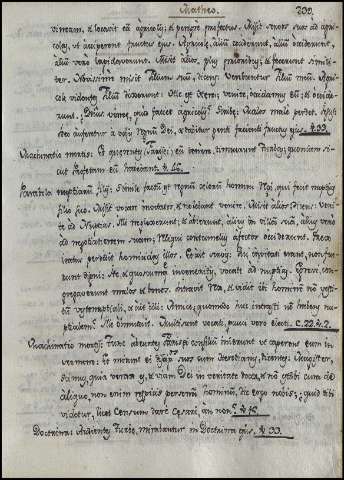 Matheo. 299.
vineam, & locavit eâ agricolis; & peregre profectus. Misit servos suos ad agri-
colas, ut acciperent fructus ejus. Agricolæ, aliū ceciderunt, aliū occiderunt,
aliū vero lapidaverunt. Misit alios, plures prioribus; & fecerunt simili-
ter. Novissimè misit filium suū, dicens: Verebuntur filium meū. Agri-
colæ videntes filium dixerunt: Hic est Heres; venite, occidamus eū; & occide-
runt. Dñus vineæ, quid faciet agricolis? Malos male perdet.
Dei auferetur a vobis regnū Dei, & dabitur genti facienti fructus ejus. 43.
& quærentes tenere, timuerunt turbas; quoniam si-
cut Prophetam eū habebant. 46.
Parabola nuptiarū filij. Simile factū est regnū cælorū homini Regi, qui fecit nuptias
filio suo. Misit vocare invitatos, & nolebant venire. Misit alios dicens: Veni-
te ad Nuptias. Illi neglexerunt; & abierunt, alius in villā suā, alius vero
ad negotiationem suam; Reliqui contumelijs affectos occiderunt.
perdidit homicidas illos.
digni: Ite, & quoscunque inveneritis, vocate ad nuptias. Egressi, con-
gregaverunt malos & bonos. Intravit Rex, & vidit ibi hominē nō vesti-
tū veste nuptiali, & ait illi: Amice, quomodo huc intrasti nō habens nu-
ptialem? Ille obmutuit. Multi sunt vocati, pauci vero electi. C. 22. 2.
Tunc abeuntes Pharisæi consiliū inierunt ut caperent eum in
sermone: Et mittunt ei discipulos suos cum Herodianis, dicentes: Magister,
scimus, quia verax es, & viam Dei in veritate doces, & nō est tibi cura de
aliquo, non enim respicis personā hominū, dic ergo nobis; quid tibi
videtur, licet censum dare Cæsari, an non? 15.
Doctrina: Audientes Turbæ, mirabantur in Doctrina ejus. 33.